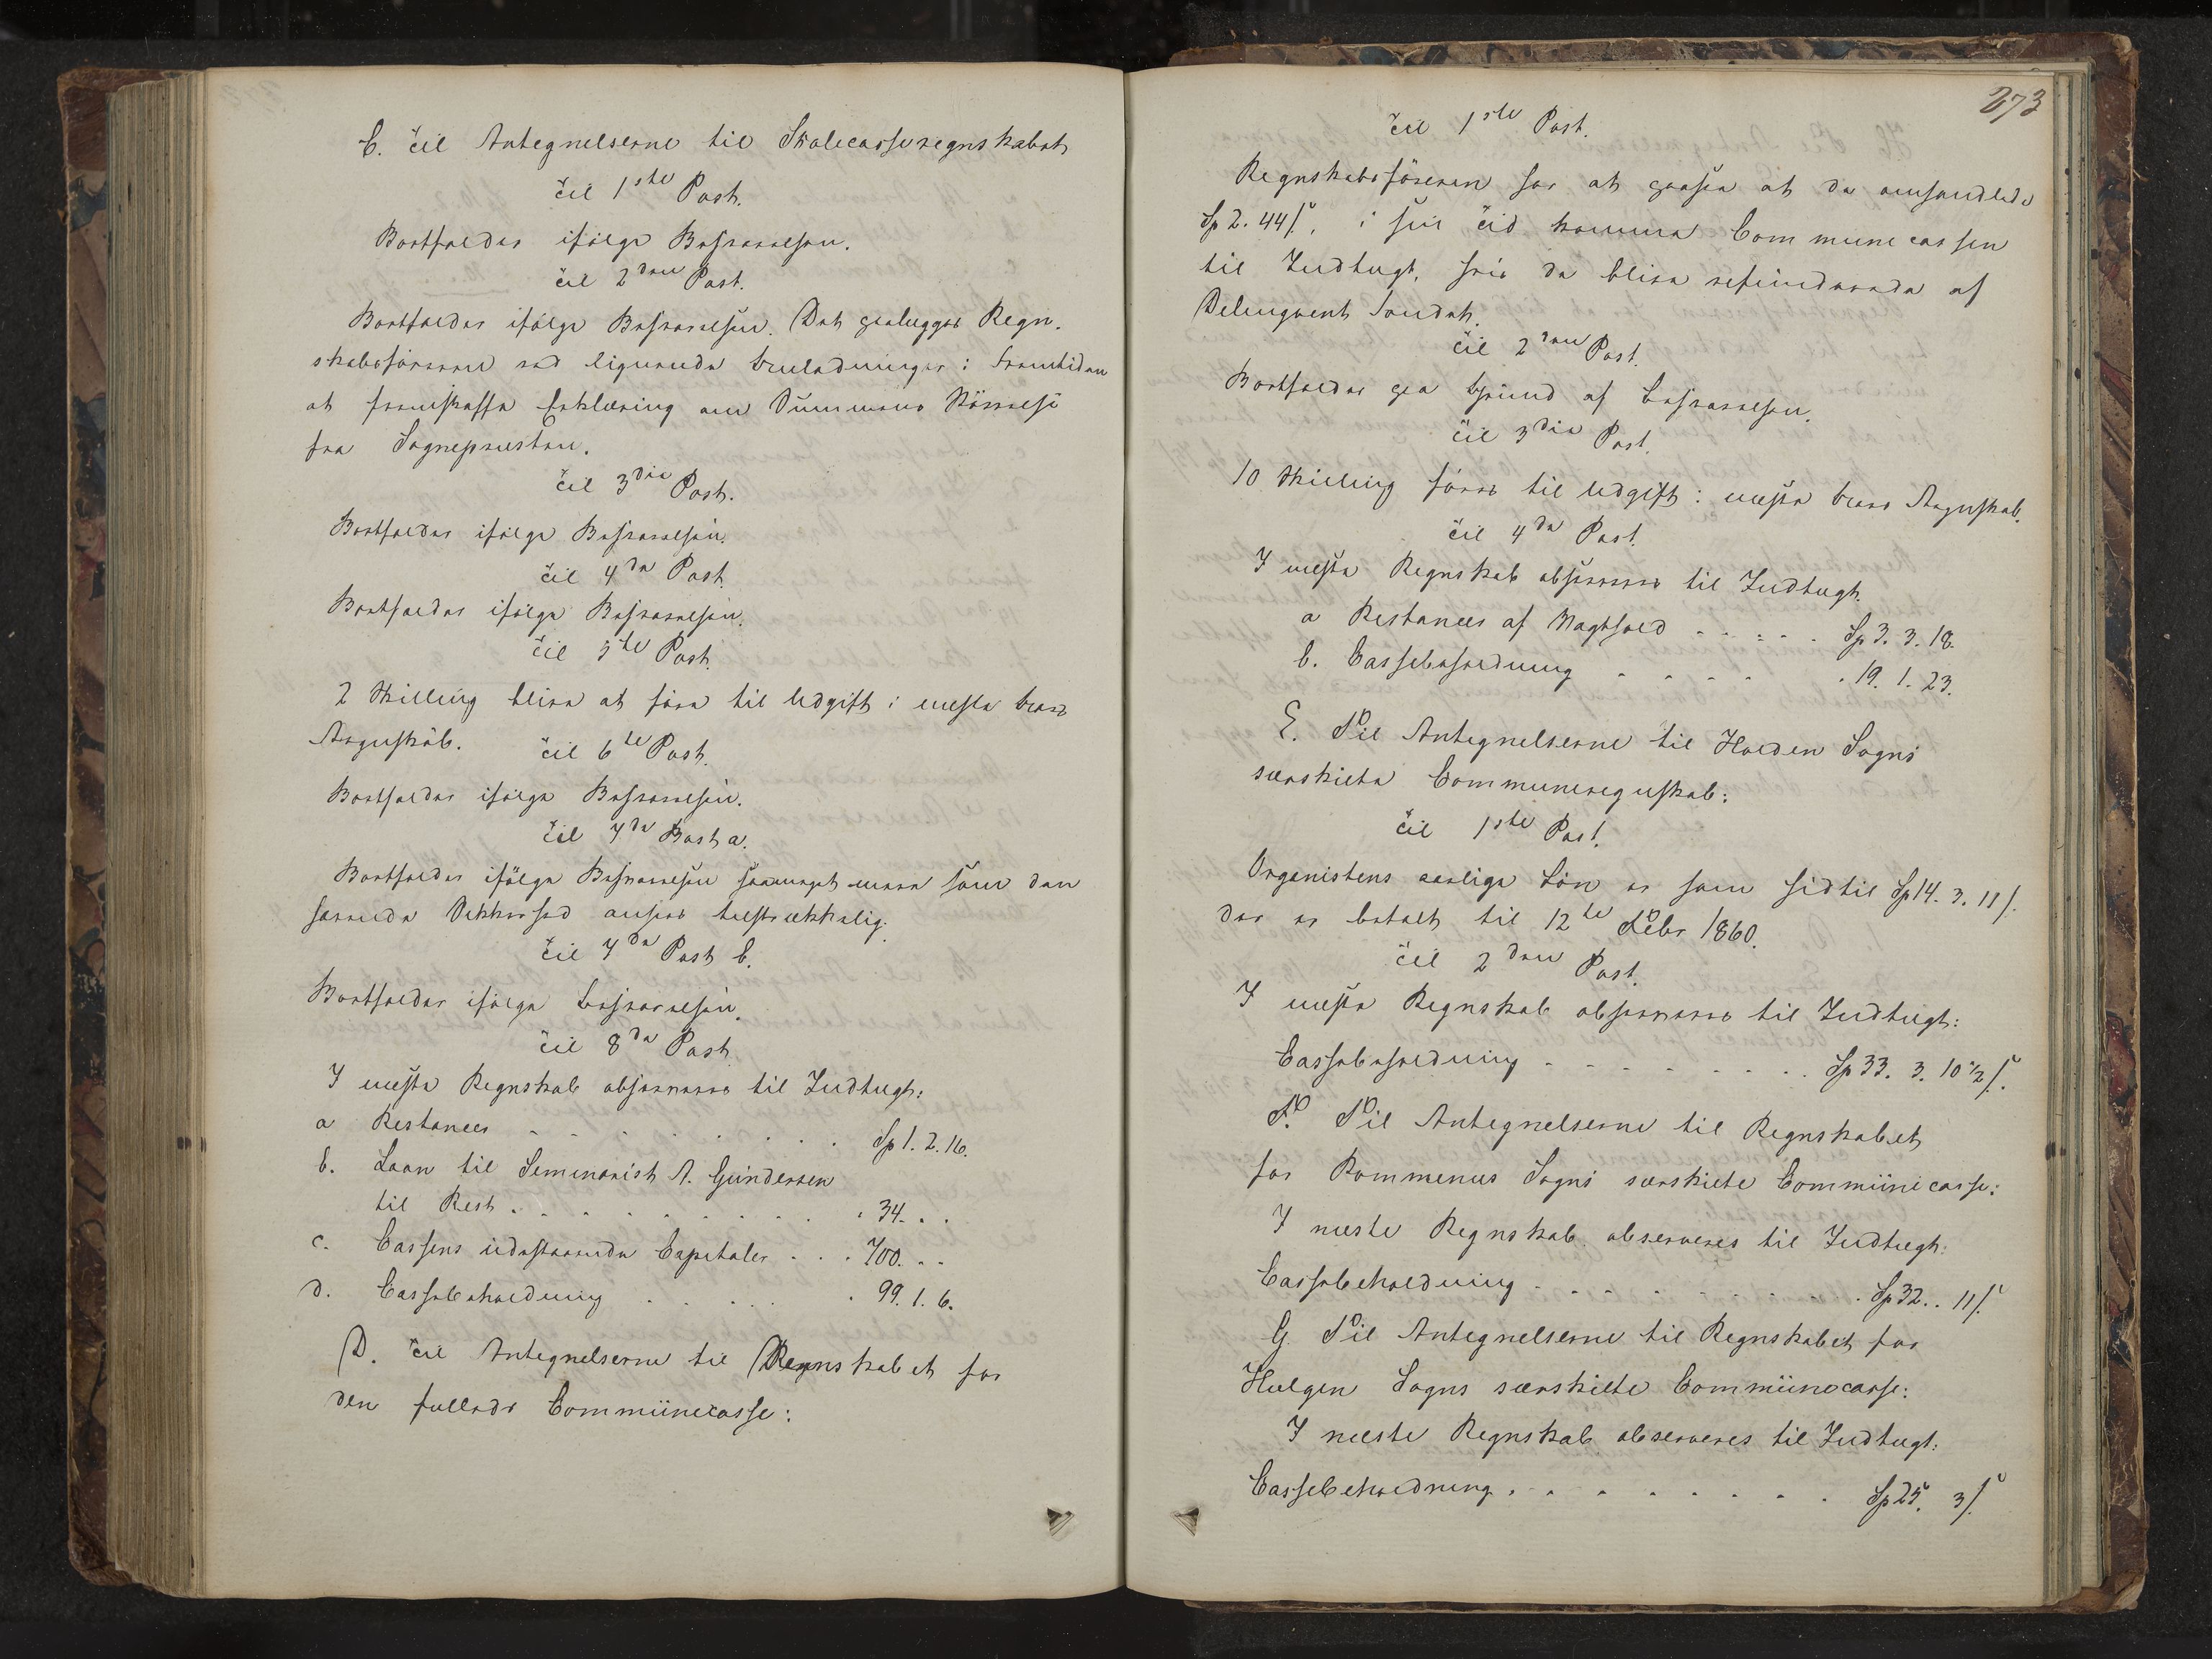 C. Til Antegnelserne til Skolecasseregnskabet
Til 1ste Post.
Bortfalder ifølge Besvarelsen.
Til 2den Post.
Bortfalder ifølge Besvarelsen. Det paalægges Regn-
skabsføreren ved lignende Anledninger i Fremtiden
at fremskaffe Erklæring om Summens Størrelse
fra Sognepræsten.
Til 3die Post.
Bortfalder ifølge Besvarelsen.
Til 4de Post.
Bortfalder ifølge Besvarelsen.
Til 5te Post.
2 Skilling bliver at føre til Udgift i næste Aars
Regnskab.
Til 6te Post.
Bortfalder ifølge Besvarelsen.
Til 7de Post a.
Bortfalder ifølge Besvarelsen saameget mere som den
havende Sikkerhed ansees tilstrækkelig.
Til 7de Post b.
Bortfalder ifølge Besvarelsen.
Til 8de Post
I næste Regnskab observeres til Indtægt:
a Restancer . . . . . . . . Sp 1. 2. 16.
b. Laan til Seminarist A. Gundersen
til Rest . . . . . . . . . 34. . .
c. Cassens udestaaende Capitaler . . . 700. . .
d. Cassebeholdning . . . . . 99. 1. 6.
D. Til Antegnelserne til Regnskabet for
den fælleds Communecasse:
273
Til 1ste Post.
Regnskabsføreren har at paasee at de omhandlede
Sp 2. 44 s. i sin Tid komme Communecassen
til Indtægt, hvis de blive refunderede af
Delinqvent Fondet.
Til 2den Post.
Bortfalder paa Grund af Besvarelsen.
Til 3die Post.
10 Skilling føres til Udgift i næste Aars Regnskab.
Til 4de Post.
I næste Regnskab observeres til Indtægt.
a Restancer af Vagthold . . . . . . Sp 3. 3. 18.
b. Cassebeholdning . . . . . 19. 1. 23.
E. Til Antegnelserne til Holden Sogns
særskilte Communeregnskab:
Til 1ste Post.
Organistens aarlige Løn er som hidtil Sp 14. 3. 11 s.
der er betalt til 12te Febr 1860.
Til 2den Post.
I næste Regnskab observeres til Indtægt:
Cassebeholdning . . . . . . . . Sp 33. 3. 10 1/2 s.
F. Til Antegnelserne til Regnskabet
for Rommenæs Sogns særskilte Communecasse:
I næste Regnskab observeres til Indtægt:
Cassebeholdning . . . . . . . . . Sp 32. . 11 s.
G. Til Antegnelserne til Regnskabet for
Helgen Sogns særskilte Communecasse:
I næste Regnskab observeres til Indtægt:
Cassebeholdning . . . . . . . . Sp 25. 3 s.